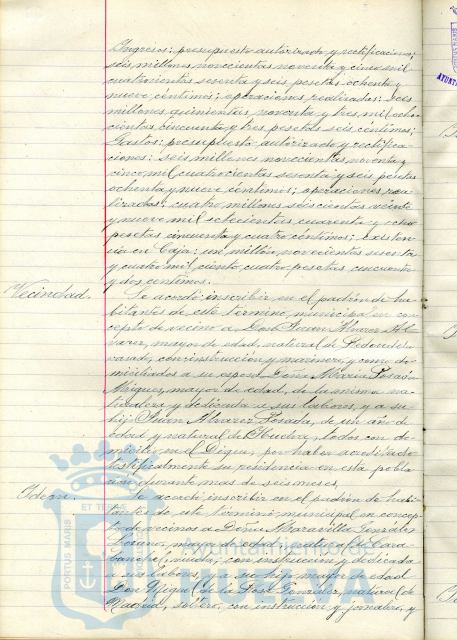 Ingresos: presupuesto autorizado y rectificaciones,
seis millones novecientos noventa y cinco mil
cuatrocientas sesenta y seis pesetas ochenta y
nueve céntimos; operaciones realizadas: seis
millones quinientas noventa y tres mil ocho-
cientas cincuenta y tres pesetas seis céntimos;
Gastos: presupuesto autorizado y rectifica-
ciones: seis millones novecientas noventa y
cinco mil cuatrocientas sesenta y seis pesetas
ochenta y nueve céntimos; operaciones rea-
lizadas: cuatro millones seiscientas veinte
y nueve mil setecientas cuarenta y ocho
pesetas cincuenta y cuatro céntimos; existen-
cia en Caja: un millón, novecientas sesenta
y cuatro mil ciento cuatro pesetas cincuenta
y dos céntimos.
Vecindad. Se acordó inscribir en el padrón de ha-
bitantes de este término municipal en con-
cepto de vecino a Don Juan Alvarez Al-
varez, mayor de edad, natural de
casado, con instrucción y marinero, y como do-
miciliados a su esposa Doña Maria Posada
mayor de edad, de la misma na-
turaleza y dedicada a sus labores, y a su
hijo Juan Alvarez Posada, de un año de
edad y natural de Huelva, todos con do-
micilio en el Dique, por haber acreditado
testificalmente su residencia en esta pobla-
ción durante mas de seis meses.
Idem. Se acordó inscribir en el padrón de habi-
tantes de este término municipal en concep-
to de vecinos a Doña Maravilla González
Lozano, mayor de edad, natural de Cara-
banchel, viuda, con instrucción y dedicada
a sus labores, y a su hijo mayor de edad
Don Miguel de la Rosa González, natural de
Madrid, soltero, con instrucción y jornalero, y
PORTUS MARIS
ET TERRAE
Ayuntamiento de